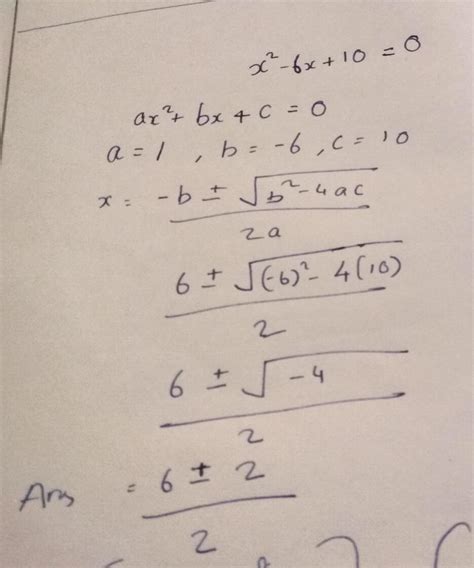 x² - 6x + 10 = 0
ax² + bx + c = 0
a = 1 , b = -6 , c = 10
x = (-b ± √(b² - 4ac)) / 2a
(6 ± √((-6)² - 4(10))) / 2
(6 ± √(-4)) / 2
Ans = (6 ± 2) / 2